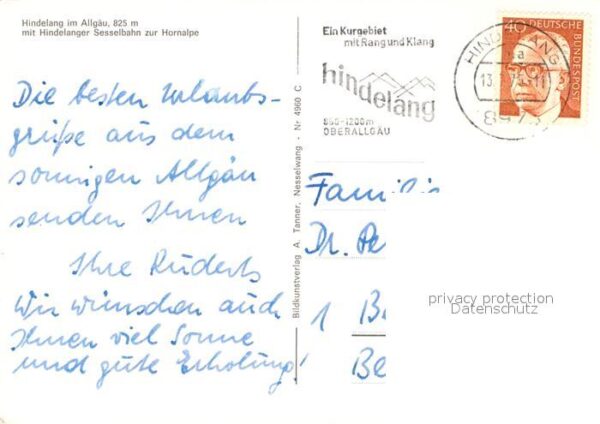 Hindelang im Allgäu, 825 m
mit Hindelanger Sesselbahn zur Hornalpe
Die besten Urlaubs-
grüße aus dem
sonnigen Allgäu
senden Ihnen
Ihre Ruderts
Wir wünschen auch
Ihnen viel Sonne
und gute Erholung!
Bildkunstverlag A. Tanner, Nesselwang - Nr 4960 C
Ein Kurgebiet
mit Rang und Klang
hindelang
850-1200m
OBERALLGÄU
HINDELANG
13.
40
DEUTSCHE
BUNDESPOST
Familie
Dr. Pe
1 B
Be
privacy protection
Datenschutz